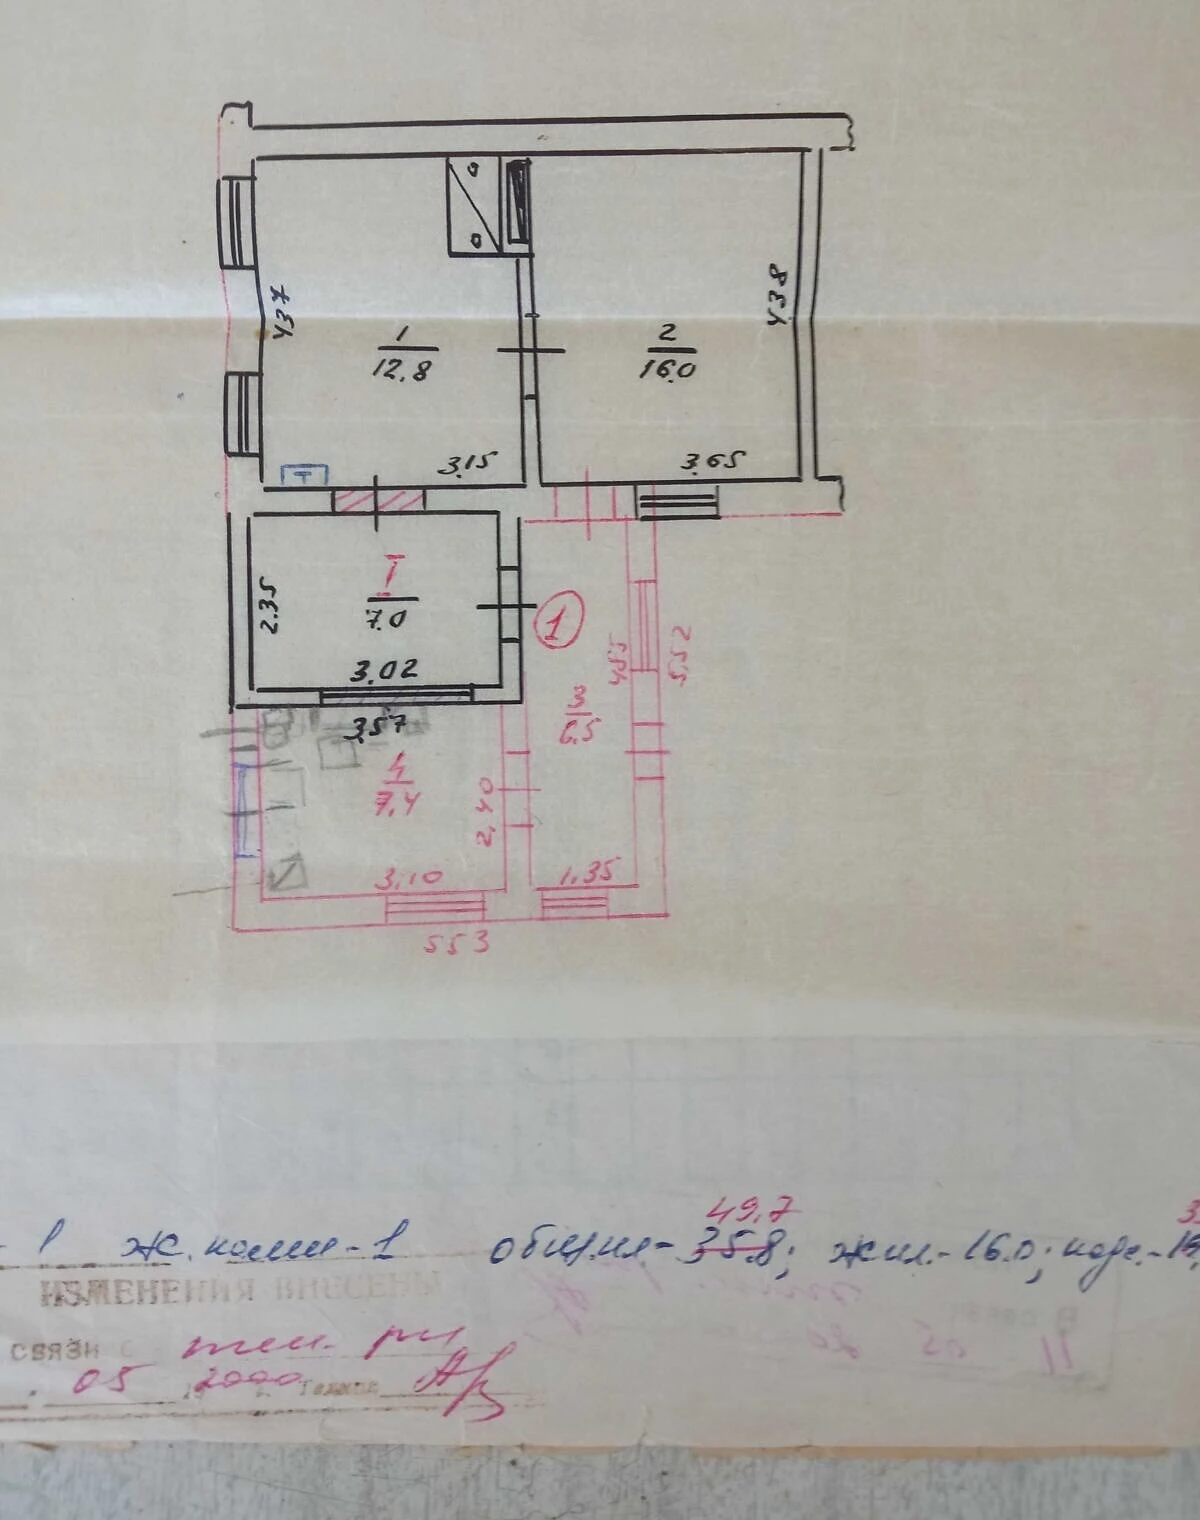 4.37
1
12.8
2
16.0
4.38
3.15
3.65
2.35
I
7.0
1
4.55
5.52
3.02
3.57
3
6.5
4
7.4
2,40
3,10
1.35
5.53
49.7
1 ж. комн - 1 общ.пл - 35.8; жил. - 16.0; подс. -
ИЗМЕНЕНИЯ ВНЕСЕНЫ
СВЯЗИ С
05 2000 г. Техник